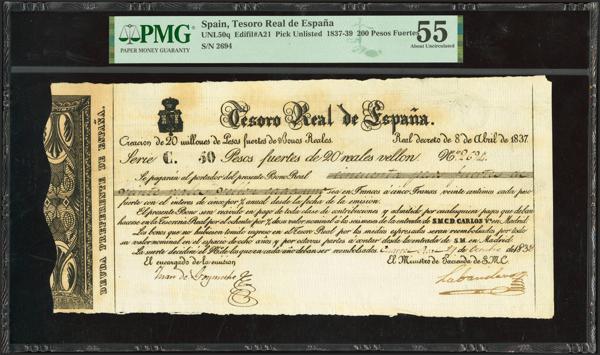 PMG
PAPER MONEY GUARANTY
Spain, Tesoro Real de España
UNL50q Edifil#A21 Pick Unlisted 1837-39 200 Pesos Fuertes
S/N 2694
55
About Uncirculated
DEUDA PREFERENTE DE ESPAÑA.
Tesoro Real de España.
Creacion de 20 millones de Pesos fuertes de Bonos Reales. Real decreto de 8 de Abril de 1837.
Serie C. 50 Pesos fuertes de 20 reales vellon. Nº 2694.
Se pagarán al portador del presente Bono Real
sea en Francos a cinco Francos veinte centimos cada peso
fuerte con el interes de cinco por % anual desde la fecha de la emision.
El presente Bono será recibido en pago de toda clase de contribuciones y admitido por cualesquiera pagos que deban
hacerse en la Tesoreria Real por el todo de su valor nominal a la de la entrada de S.M.C. D. CARLOS Vº en Madrid.
Los bonos que no hubiesen tenido ingreso en el Tesoro Real por los medios espresados seran reembolsados por todo
su valor nominal en el espacio de ocho años y por octavas partes a contar desde la entrada de S.M. en Madrid.
La suerte decidira el que en cada año deban ser reembolsados. de 1838
El encargado de la emision El Ministro de Hacienda de S.M.C.
Juan de
Labandero